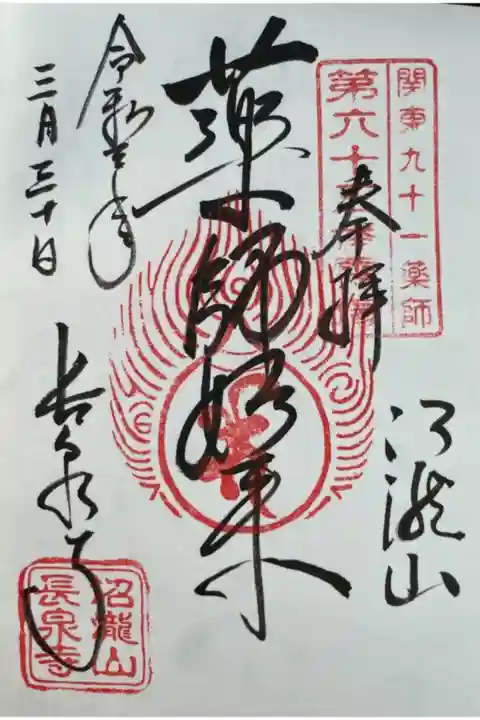 関東九十一薬師
第六十
奉拝
沼瀧山
薬師如来
令和 年
三月三十日
長泉寺
沼瀧山
長泉寺